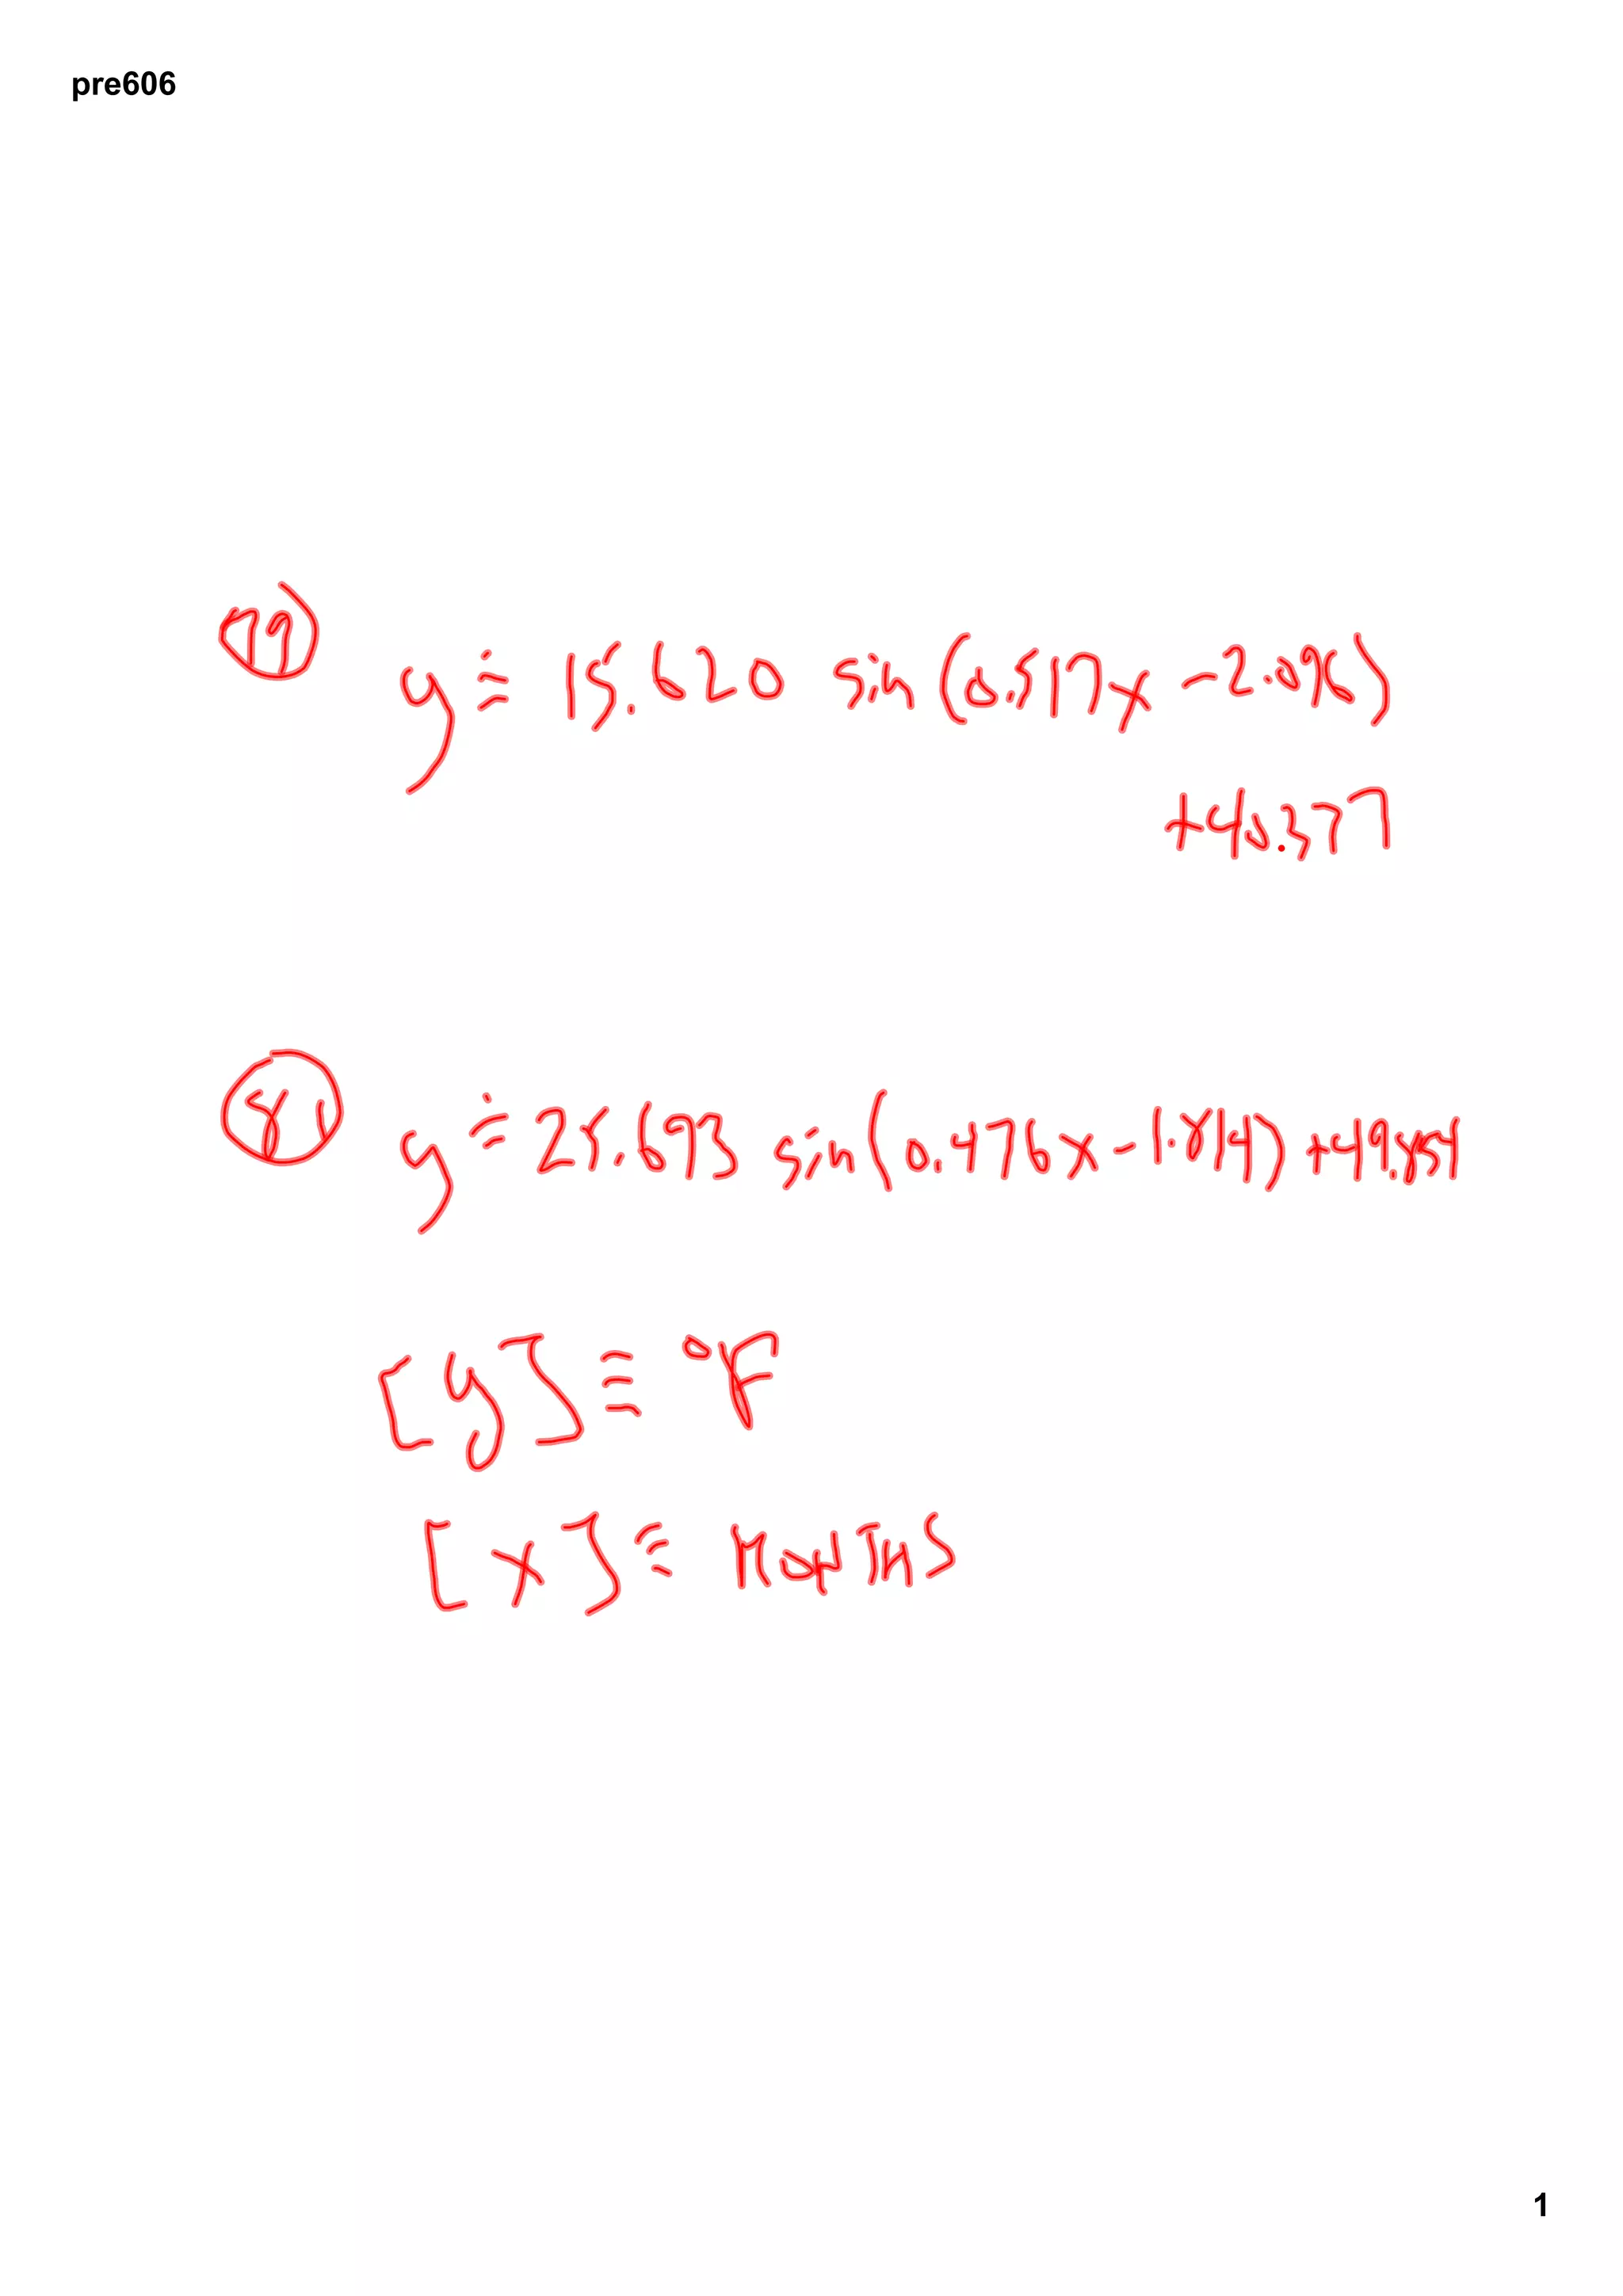 pre606
y ≐ 15.620 sin(0.517x - 2.096)
+40.377
81 y ≐ 25.693 sin(0.476x - 1.814) + 49.854
[y] ≡ °F
[x] ≡ MONTHS
1